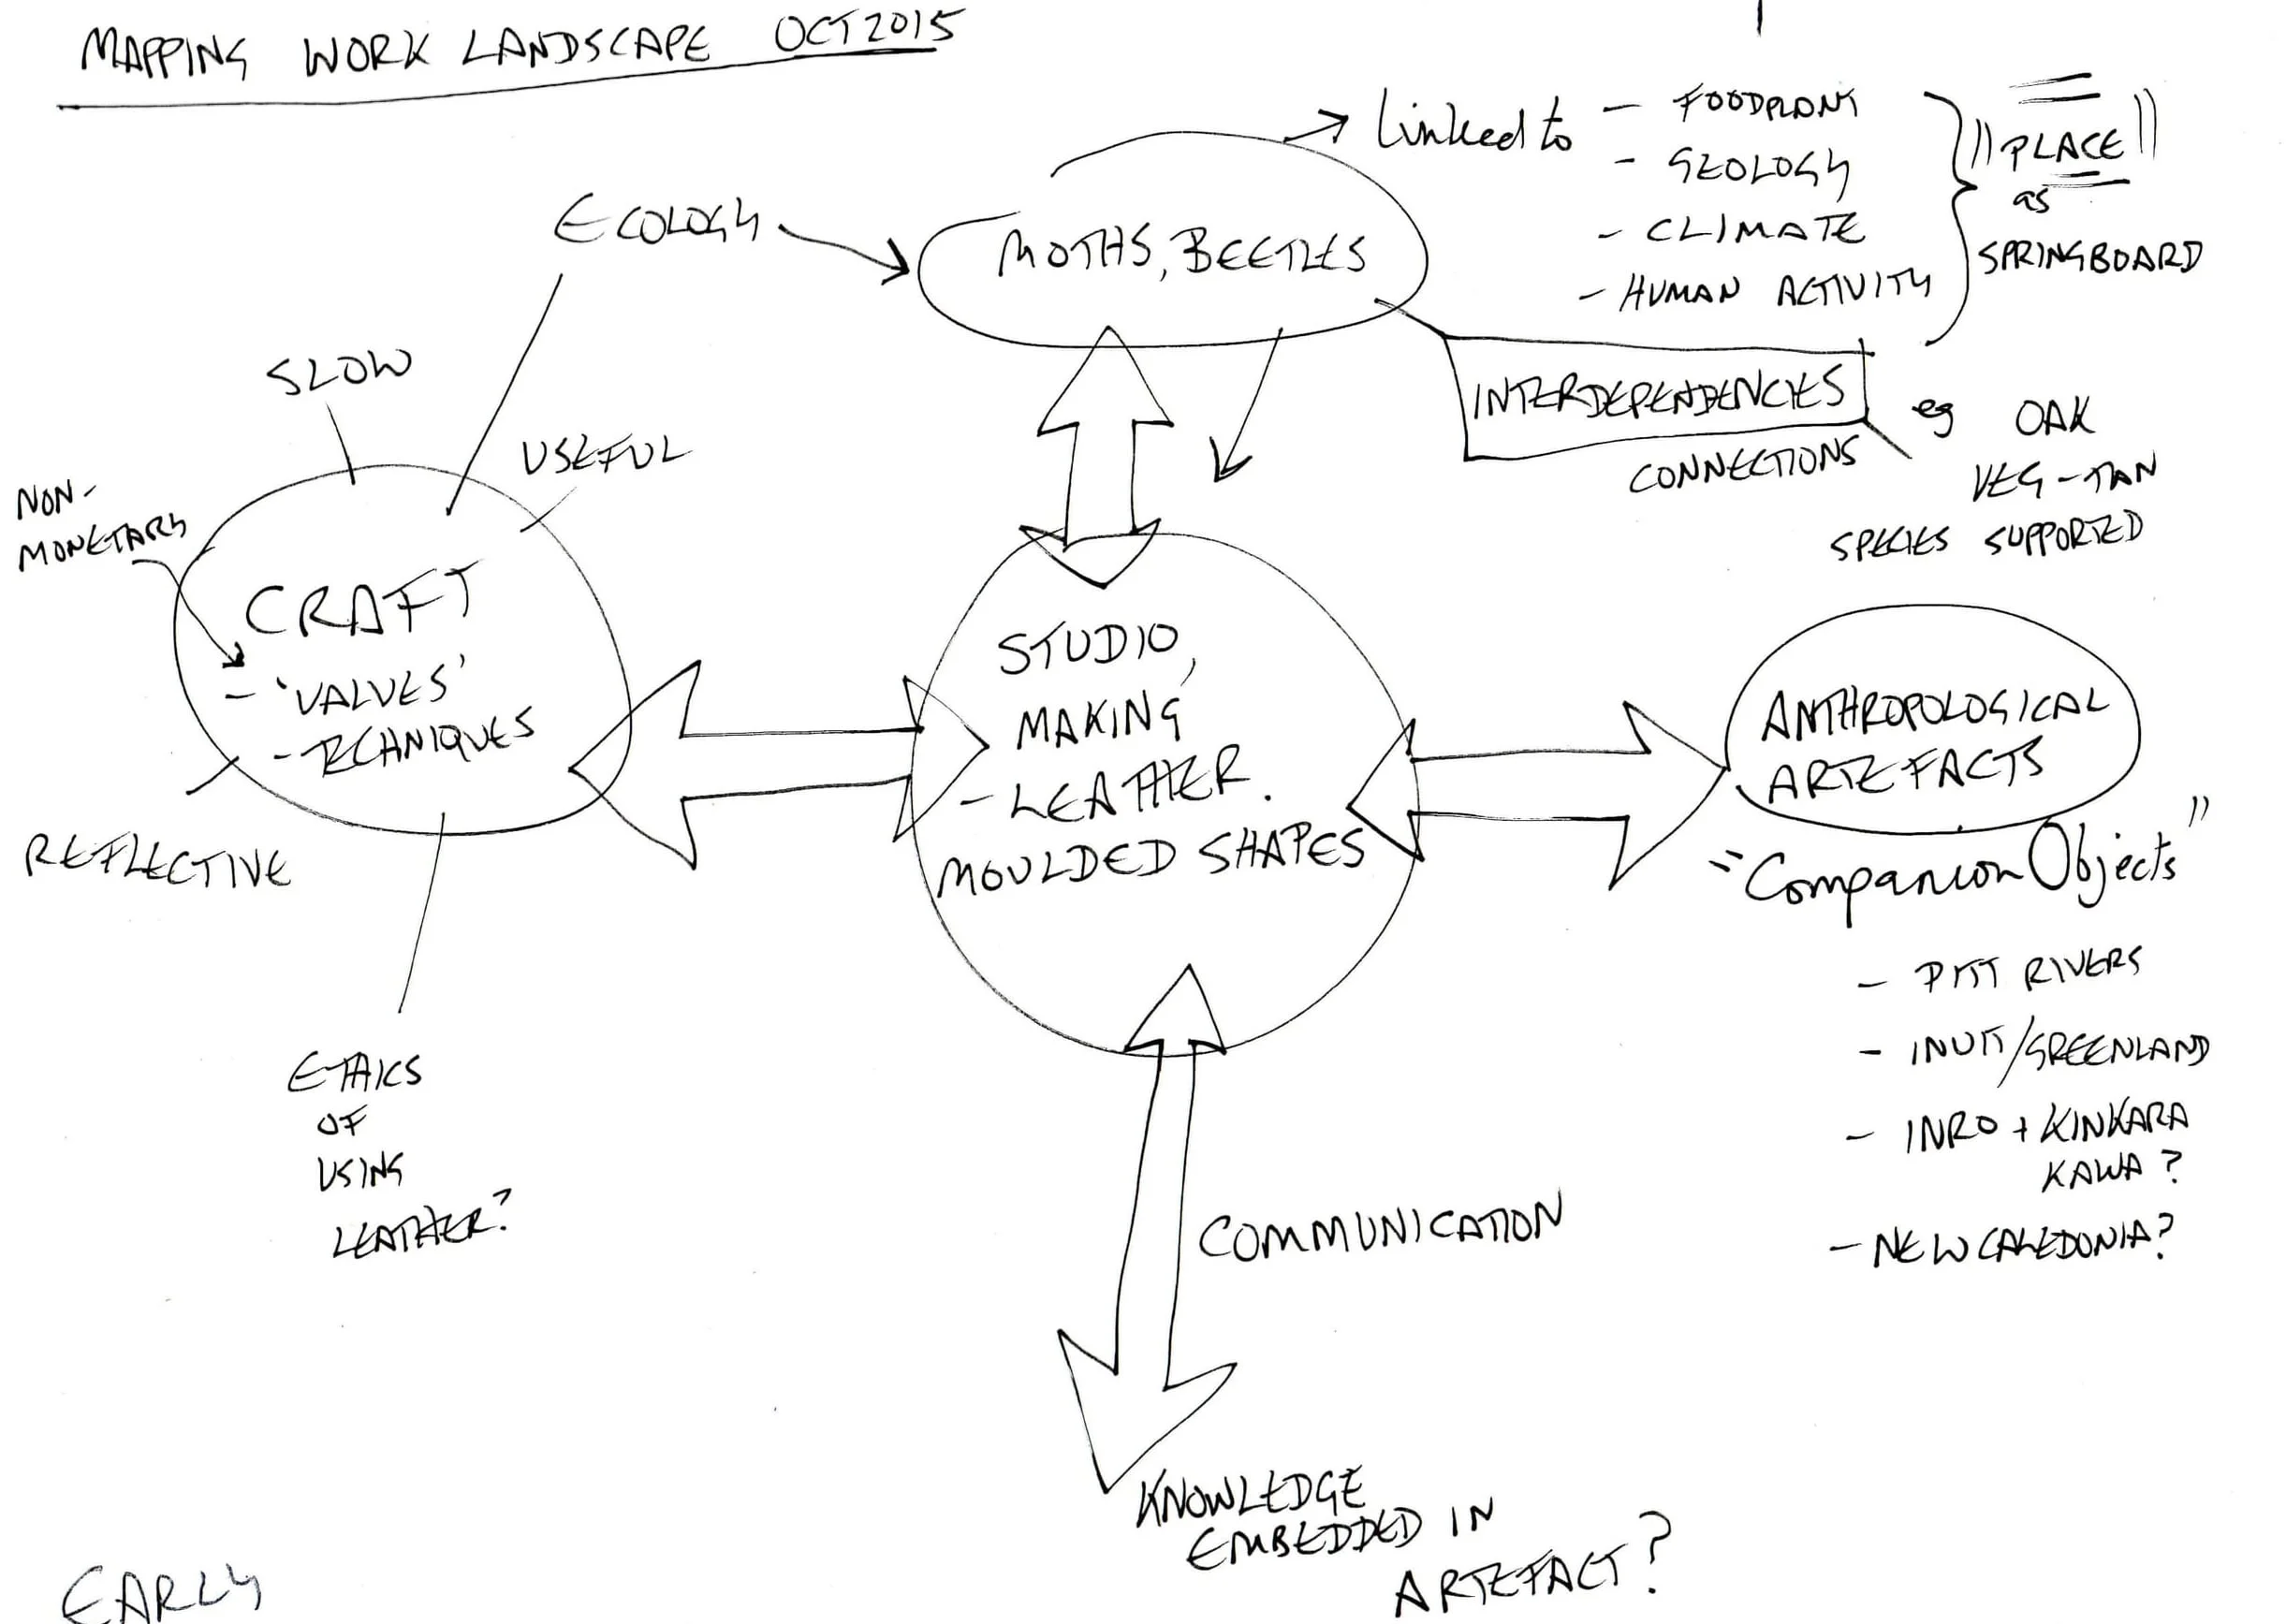 MAPPING WORK LANDSCAPE OCT 2015
Linked to
- FOODPLANT
- GEOLOGY
- CLIMATE
- HUMAN ACTIVITY
"PLACE"
as
SPRINGBOARD
ECOLOGY
MOTHS, BEETLES
INTERDEPENDENCIES
CONNECTIONS
eg OAK
VEG-TAN
SPECIES SUPPORTED
SLOW
USEFUL
NON-
MONETARY
CRAFT
- 'VALUES'
- TECHNIQUES
REFLECTIVE
ETHICS
OF
USING
LEATHER?
STUDIO,
MAKING
- LEATHER.
MOULDED SHAPES
ANTHROPOLOGICAL
ARTEFACTS
"Companion Objects"
- PITT RIVERS
- INUIT/GREENLAND
- INRO + KINKARA
KAWA?
- NEW CALEDONIA?
COMMUNICATION
KNOWLEDGE
EMBEDDED IN
ARTEFACT?
EARLY